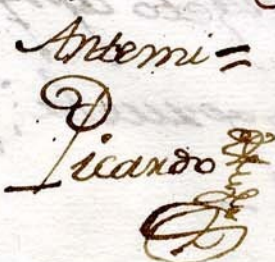 Antemi=
Picardo